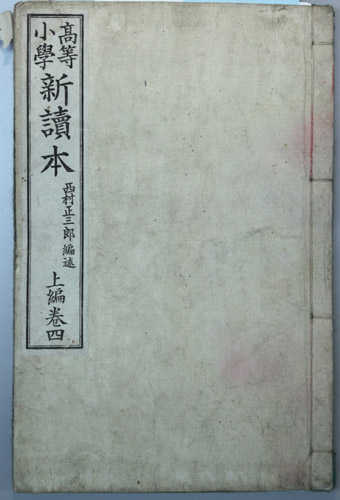 高等
小學
新讀本
西村正三郎編述
上編卷四